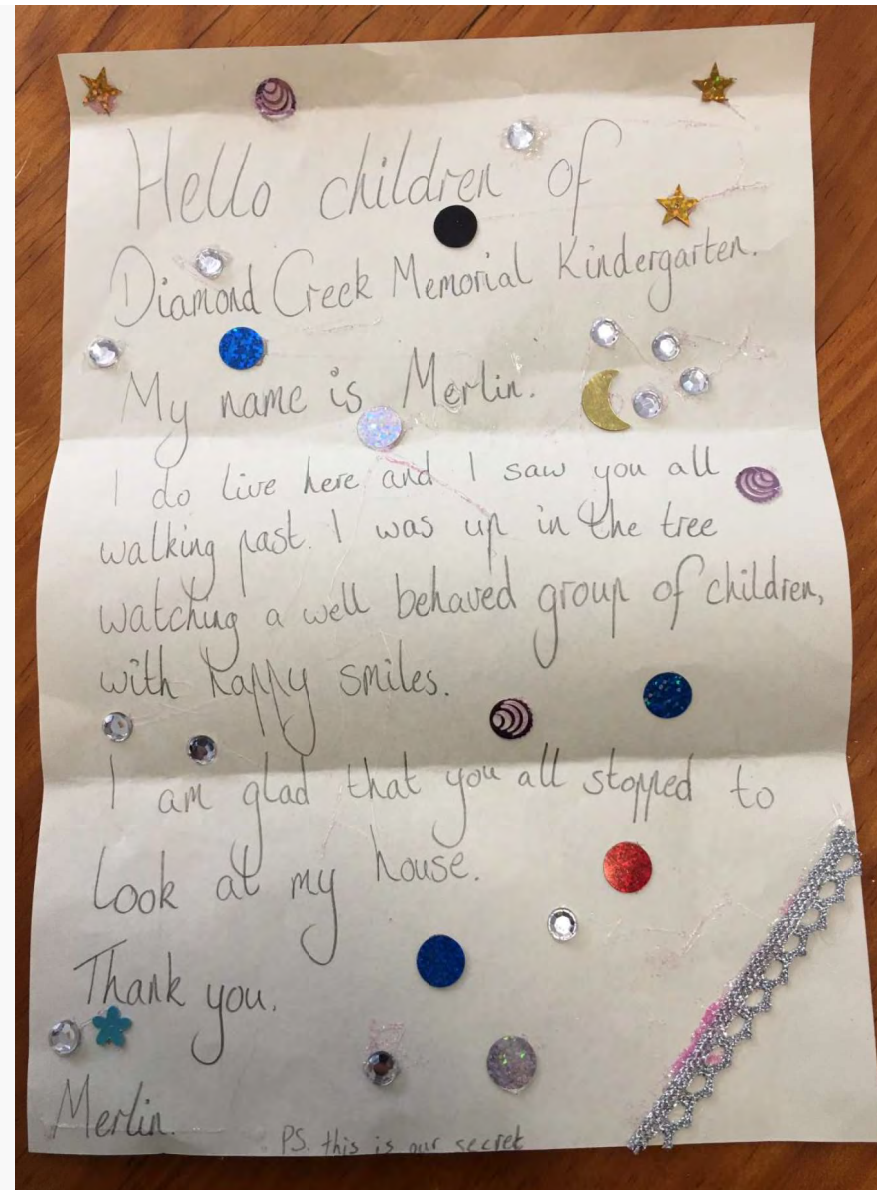 Hello children of
Diamond Creek Memorial Kindergarten.
My name is Merlin.
I do live here and I saw you all
walking past. I was up in the tree
watching a well behaved group of children,
with happy smiles.
I am glad that you all stopped to
look at my house.
Thank you.
Merlin.
PS. this is our secret